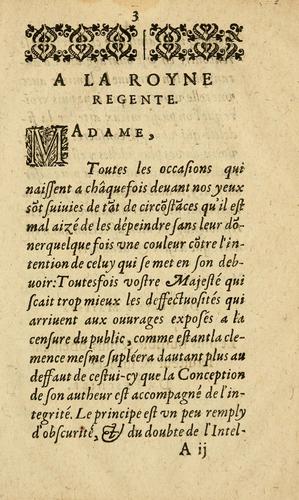 3
A LA ROYNE
REGENTE.
MADAME,
Toutes les occasions qui
naissent a châquefois deuant nos yeux
sōt suiuies de tāt de circōstāces qu'il est
mal aizé de les dépeindre sans leur dō-
nerquelque fois vne couleur cōtre l'in-
tention de celuy qui se met en son deb-
uoir:Toutesfois vostre Majesté qui
scait trop mieux les deffectuosités qui
arriuent aux ouurages exposés a la
censure du public, comme estantla cle-
mence mesme supléera dautant plus au
deffaut de cestui-cy que la Conception
de son autheur est accompagné de l'in-
tegrité. Le principe est vn peu remply
d'obscurité, & du doubte de l'Intel-
A ij